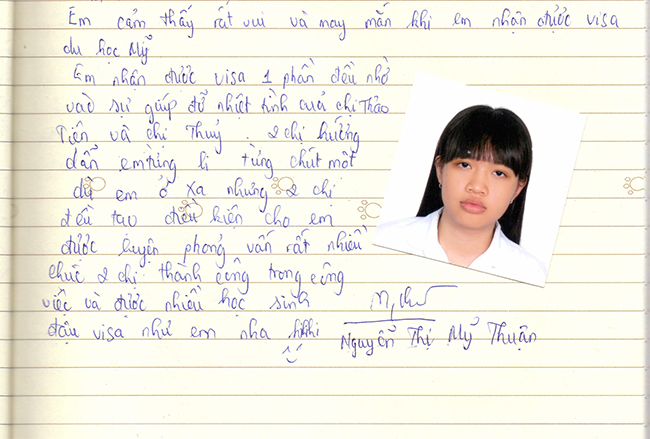 Em cảm thấy rất vui và may mắn khi em nhận được visa
du học Mỹ
Em nhận được visa 1 phần đều nhờ
vào sự giúp đỡ nhiệt tình của chị Thảo
Tiên và chị Thuỷ. 2 chị hướng
dẫn em từng li từng chút một
dù em ở xa nhưng 2 chị
đều tạo điều kiện cho em
được luyện phỏng vấn rất nhiều
chúc 2 chị thành công trong công
việc và được nhiều học sinh
đậu visa như em nha hihi
Nguyễn Thị Mỹ Thuận